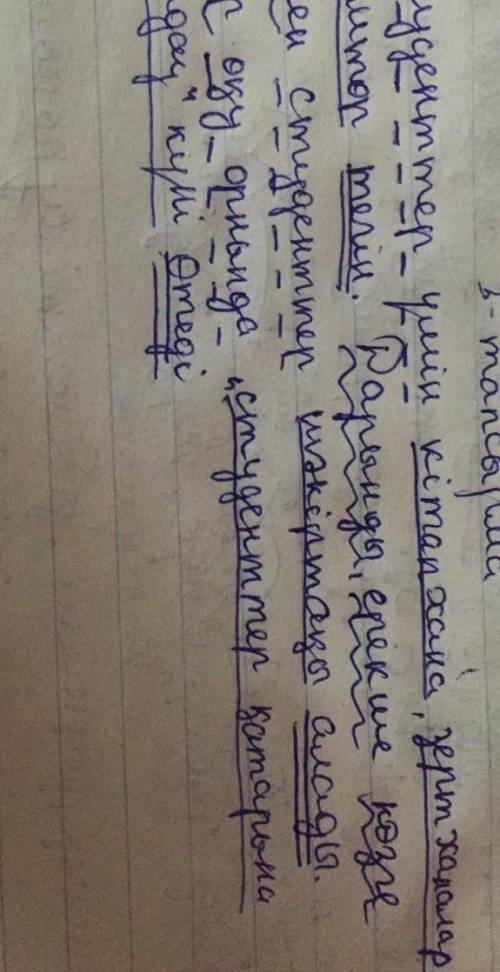 6-тапсырма
уденттер үшін кітапхана, зертханалар
итор тегін. Дарынды, ерекше көзге
ен студенттер шәкіртақы алады.
оқу орнында „студенттер қатарына
дау" күні өтеді